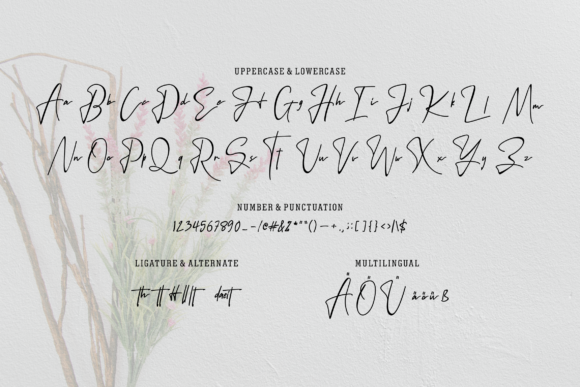 UPPERCASE & LOWERCASE
Aa Bb Cc Dd Ee Ff Gg Hh Ii Jj Kk Ll Mm
Nn Oo Pp Qq Rr Ss Tt Uu Vv Ww Xx Yy Zz
NUMBER & PUNCTUATION
1234567890_-/@#&%*""()—+.,;:[]{}<>/|\$
LIGATURE & ALTERNATE
th tt H ll t
MULTILINGUAL
Å Ö Ü